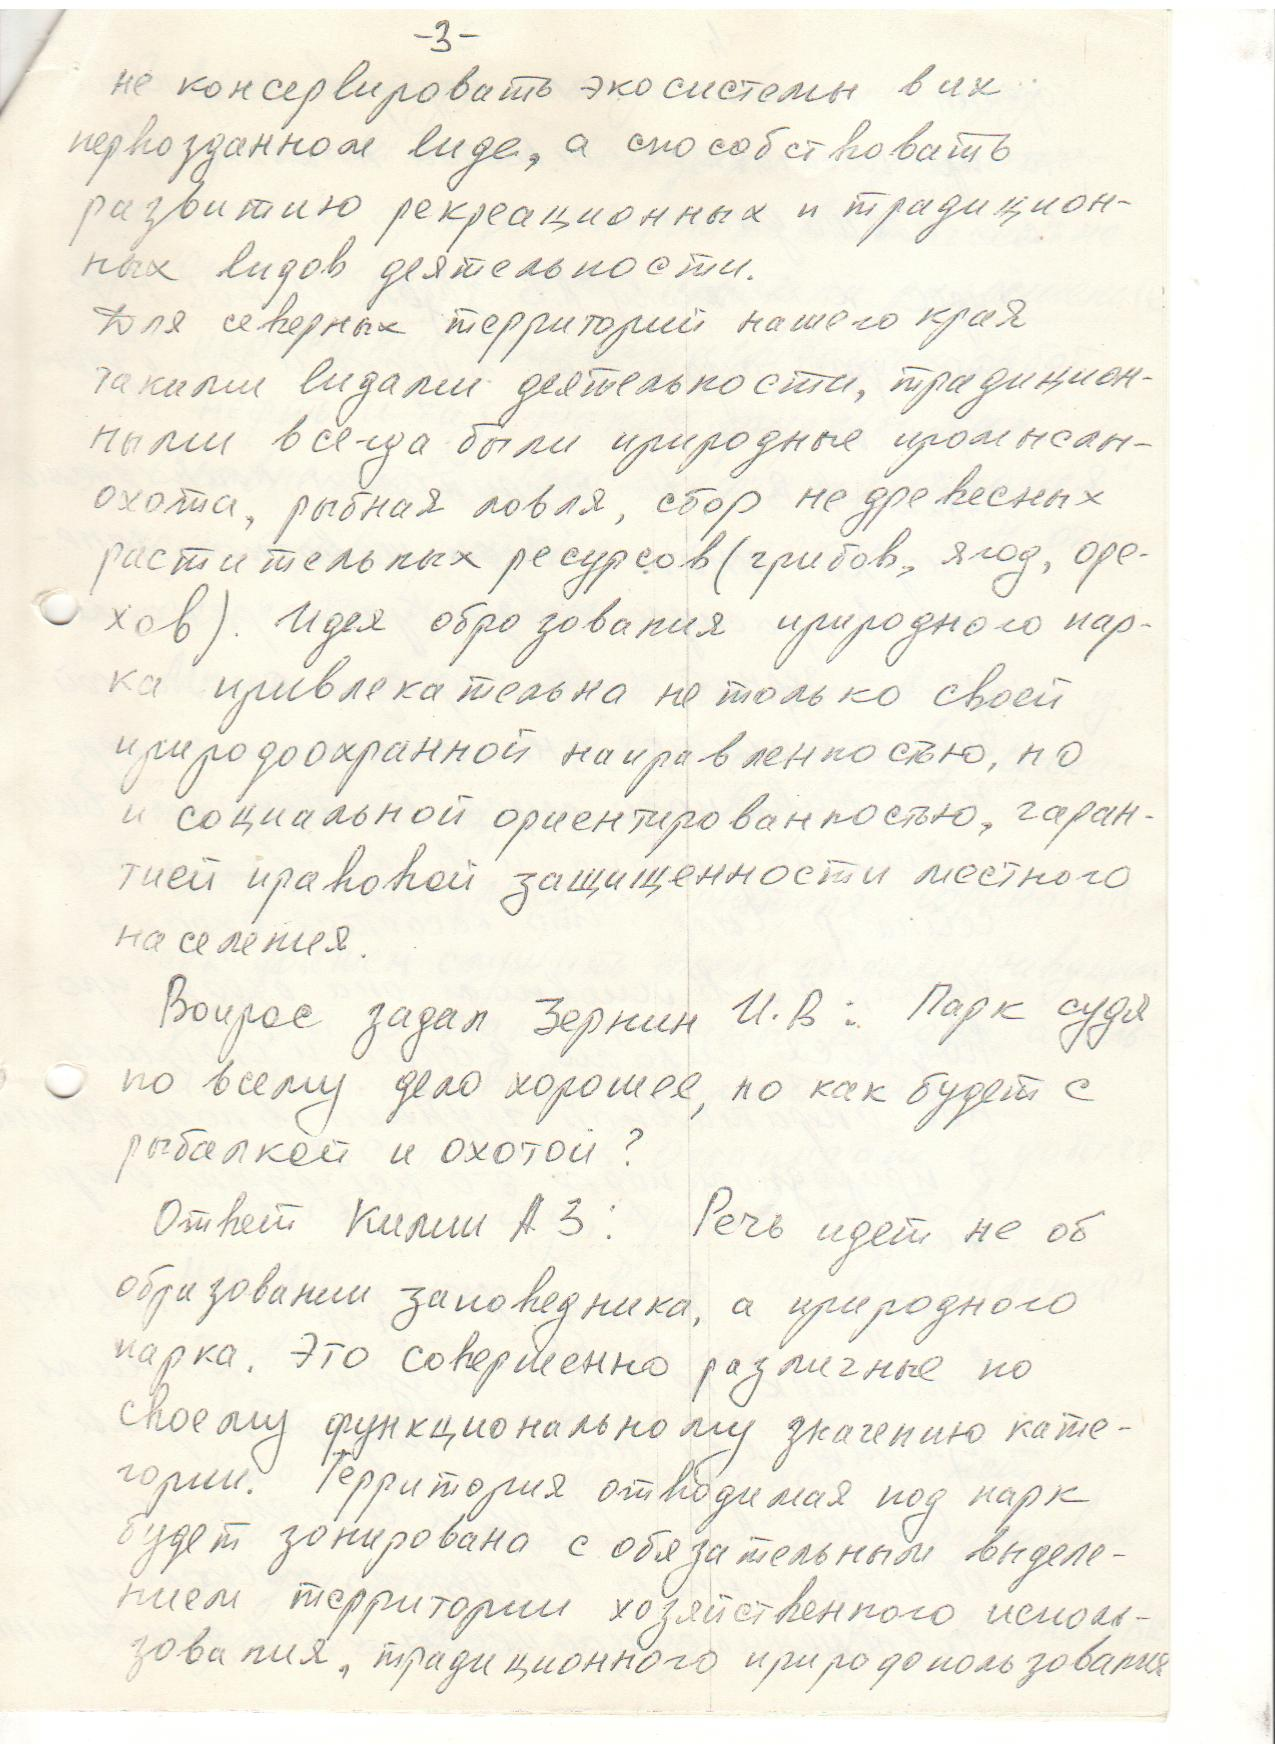 -3-
не консервировать экосистемы в их
первозданном виде, а способствовать
развитию рекреационных и традицион-
ных видов деятельности.
Для северных территорий нашего края
такими видами деятельности, традицион-
ными всегда были природные промыслы-
охота, рыбная ловля, сбор не древесных
растительных ресурсов (грибов, ягод, оре-
хов). Идея образования природного пар-
ка привлекательна не только своей
природоохранной направленностью, но
и социальной ориентированностью, гаран-
тией правовой защищенности местного
населения.
Вопрос задал Зернин И.В: Парк судя
по всему дело хорошее, но как будет с
рыбалкой и охотой?
Ответ Килин А З: Речь идет не об
образовании заповедника, а природного
парка. Это совершенно различные по
своему функциональному значению кате-
гории. Территория отводимая под парк
будет зонирована с обязательным выделе-
нием территории хозяйственного исполь-
зования, традиционного природопользования